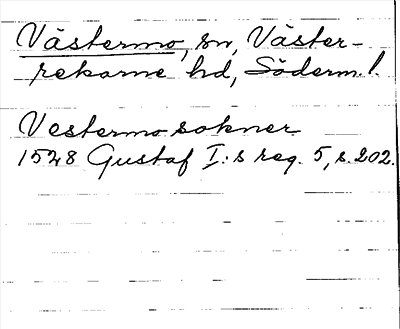 Västermo, sn, Väster-
rekarne hd, Söderm.l.
Vestermo sokner
1528 Gustaf I:s reg. 5, s. 202.